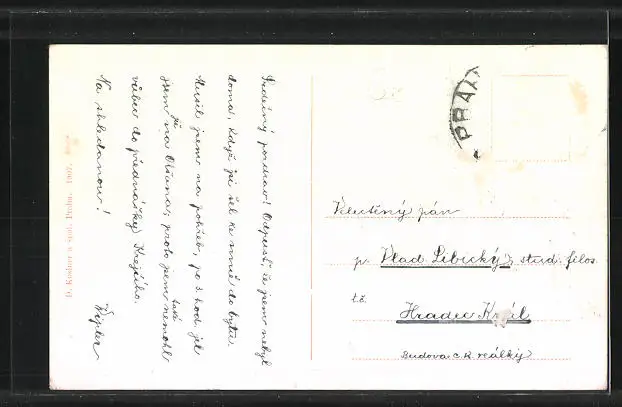 Srdečný pozdrav! Odpusť že jsem nebyl
doma, když jsi šel ke mně do bytu
Musil jsem na pohřeb, po 3. hod. jel
jsem již na Olšany, proto jsem nemohl také
vůbec do přednášky Krejčího.
Na shledanou!
D. Kosiner a spol. Praha. 1907.
PRAHA
Velectěný pán
p. Vlad. Libický, stud. filos.
t. č.
Hradec Král
Budova c. k. reálky